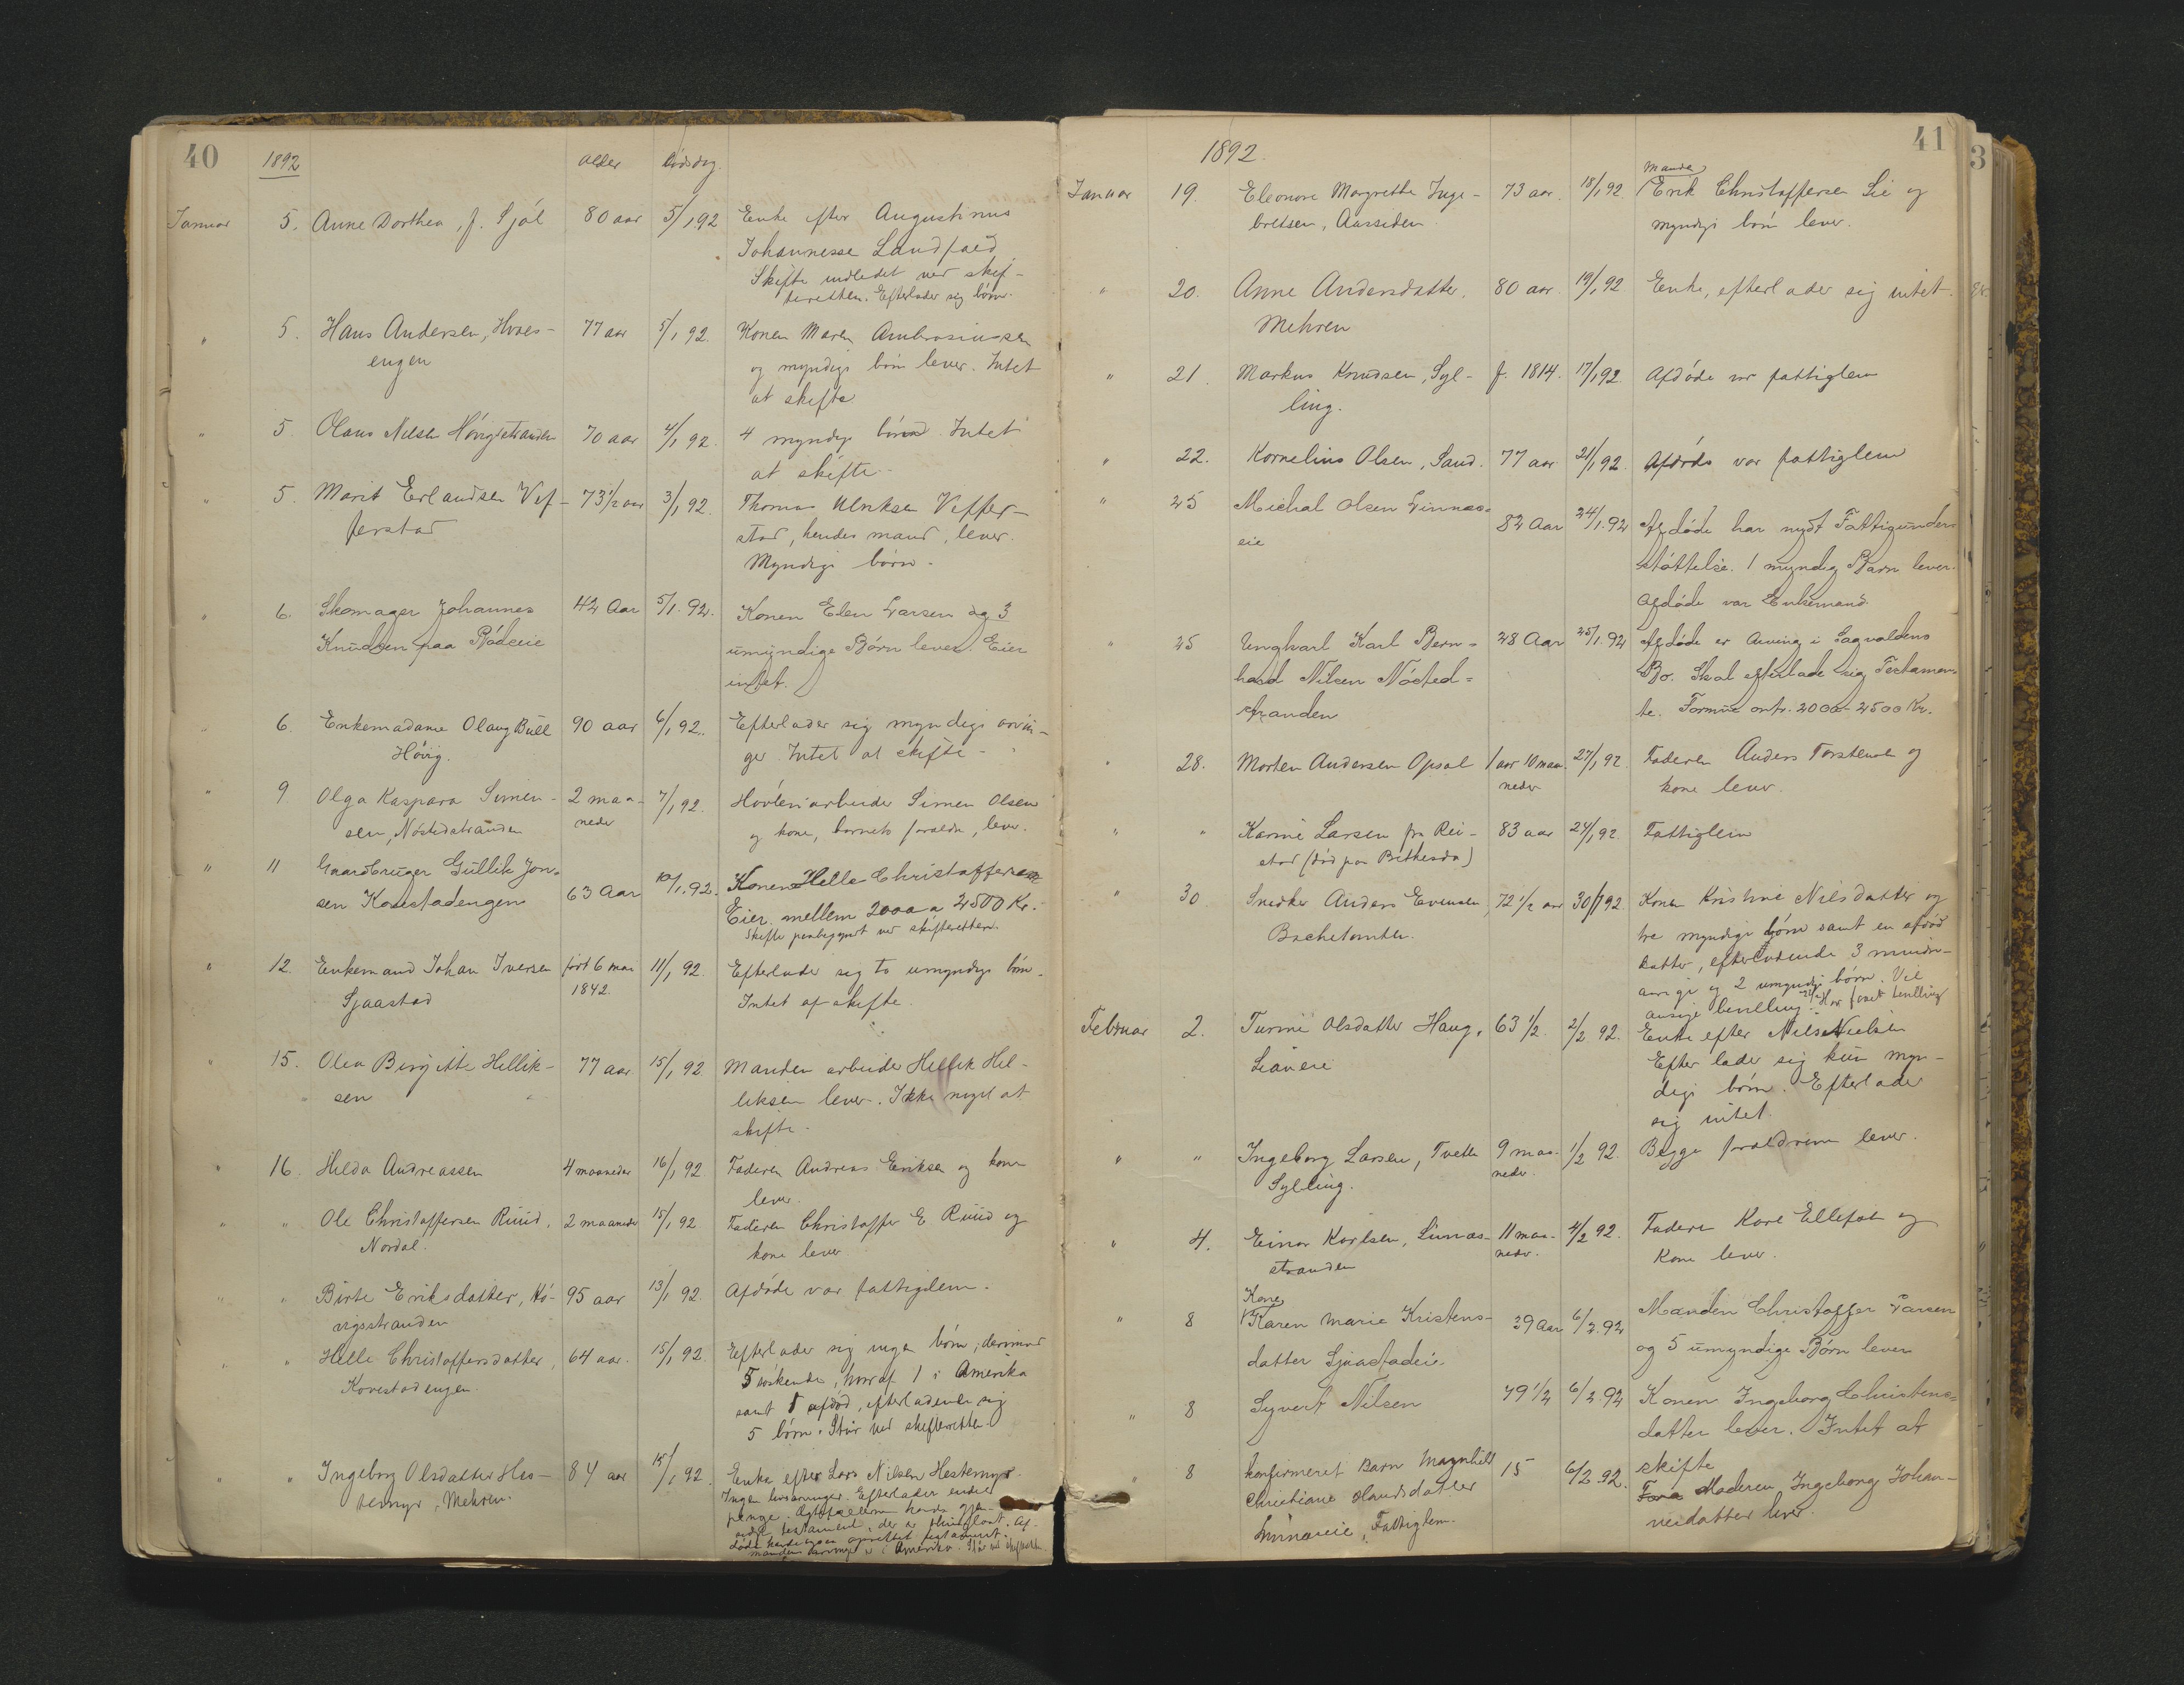 40
1892
alder
dødsdag
Januar 5. Anne Dorthea, f. Sjøl 80 aar 5/1 92 Enke efter Augustinus
Johannesse Landfald
Skifte indledet ved skif-
teretten. Efterlader sig børn.
" 5. Hans Andersen, Hvæs- 77 aar 5/1 92. Konen Maren Ambrosiussen
engen og myndige børn lever. Intet
at skifte
" 5 Olaus Nilsen Høvigstranden 70 aar 4/1 92. 4 myndige børn. Intet
at skifte.
" 5. Marit Erlandsen Vef- 73 1/2 aar 3/1 92. Thomas Ulriksen Veffer-
ferstad stad, hendes mand, lever.
Myndige børn.
" 6. Skomager Johannes 42 Aar 5/1. 92. Konen Elen Larsen og 3
Knudsen paa Rødeie umyndige Børn lever. Eier
intet.
" 6. Enkemadame Olaug Bull 90 aar 6/1 92. Efterlader sig myndige arvin-
Høvig. ger. Intet at skifte.
" 9 Olga Kaspara Simen- 2 maa- 7/1 92. Høvleriarbeider Simen Olsen
sen, Nøstedstranden neder og kone, barnets forældre, lever.
" 11 Gaardbruger Gullik Jon- 63 Aar 10/1. 92. Konen Helle Christoffersen
sen Kovestadengen Eier mellem 2000 a 2500 Kr.
Skifte paabegyndt ved skifteretten.
" 12. Enkemand Johan Iversen født 6 mai 11/1 92. Efterlader sig to umyndige børn.
Sjaastad 1842. Intet at skifte.
" 15. Olea Birgitte Hellik- 77 aar 15/1 92 Manden arbeider Hellik Hel-
sen liksen lever. Ikke noget at
skifte.
" 16 Hilda Andreassen 4 maaneder 16/1 92 Faderen Andreas Eriksen og kone
lever.
" " Ole Christoffersen Ruud, 2 maaneder 15/1 92 Faderen Christoffer E Ruud og
Nordal. kone lever
" " Birte Eriksdatter, Hø- 95 aar 13/1 92. Afdøde var fattiglem.
vigsstranden
" " Helle Christoffersdatter, 64 aar. 15/1 92. Efterlader sig ingen børn, derimod
Kovestadengen. 5 søskende, hvoraf 1 i Amerika
samt 1 afdød, efterladende sig
5 børn. Står ved skifteretten.
" " Ingeborg Olsdatter Hes- 84 aar 15/1 92. Enke efter Lars Nilsen Hestemyr.
temyr, Mehren. Ingen livsarvinger. Efterlader endel
penge. Ægtefællerne havde
testament, der er thinglæst. Af-
døde havde ogsaa oprettet testament.
Amerika. Står ved skifteretten.
41
1892.
Manden
Januar 19. Eleonore Margrethe Inge- 73 aar. 18/1 92. Erik Christoffersen Lie og
bretsen, Aarsiden myndige børn lever.
" 20. Anne Andersdatter, 80 aar. 19/1 92. Enke, efterlader sig intet.
Mehren
" 21. Markus Knudsen, Syl- f. 1814. 17/1 92. Afdøde var fattiglem
ling.
" 22. Kornelius Olsen, Sand. 77 aar 21/1 92. Afdøde var fattiglem
" 25 Michal Olsen Linnes- 82 Aar 24/1. 92 Afdøde har nydt Fattigunder-
eie støttelse. 1 myndig Barn lever.
Afdøde var Enkemand.
" 25 Ungkarl Karl Bern- 28 Aar 25/1. 92 Afdøde er Arving i Sagvoldens
hard Nilsen Nøsted- Bo. Skal efterlade sig Testamen-
stranden te. Formue ontr. 2000-2500 Kr.
" 28. Morten Andersen Opsal 1 aar 10 maa- 27/1 92. Faderen Anders Torstensen og
neder kone lever.
" " Karine Larsen fra Rei- 83 aar 24/1 92. Fattiglem
stad (død paa Bethesda)
" 30 Snedker Anders Evensen, 72 1/2 aar 30/1 92. Konen Kristine Nilsdatter og
Bachetomten. tre myndige børn samt en afdød
datter, efterladende 3 mindre-
aarige og 2 umyndige børn. Vil
ansøge bevilling. Har faaet bevilling
Februar 2. Turine Olsdatter Haug, 63 1/2. 2/2 92. Enke efter Nils Nielsen
Lianeie Efterlader sig kun myn-
dige børn. Efterlader
sig intet.
" " Ingeborg Larsen, Tveten 9 maa- 1/2 92. Begge forældrene lever.
Sylling. neder.
" 4. Einar Karlsen, Linnes- 11 maa- 4/2 92. Faderen Karl Ellefsen og
stranden neder. Kone lever.
Kone
" 8 Karen Marie Kristens- 39 Aar 6/2. 92 Manden Christoffer Larsen
datter Sjaastadeie og 5 umyndige Børn lever
" 8 Syvert Nilsen 79 1/2 6/2. 92 Konen Ingeborg Christens-
datter lever. Intet at
skifte
" 8 Konfirmeret Barn Magnhild 15 6/2 92. Moderen Ingeborg Johan-
Christiane Olausdatter nesdatter lever.
Linneseie, Fattiglem.
3